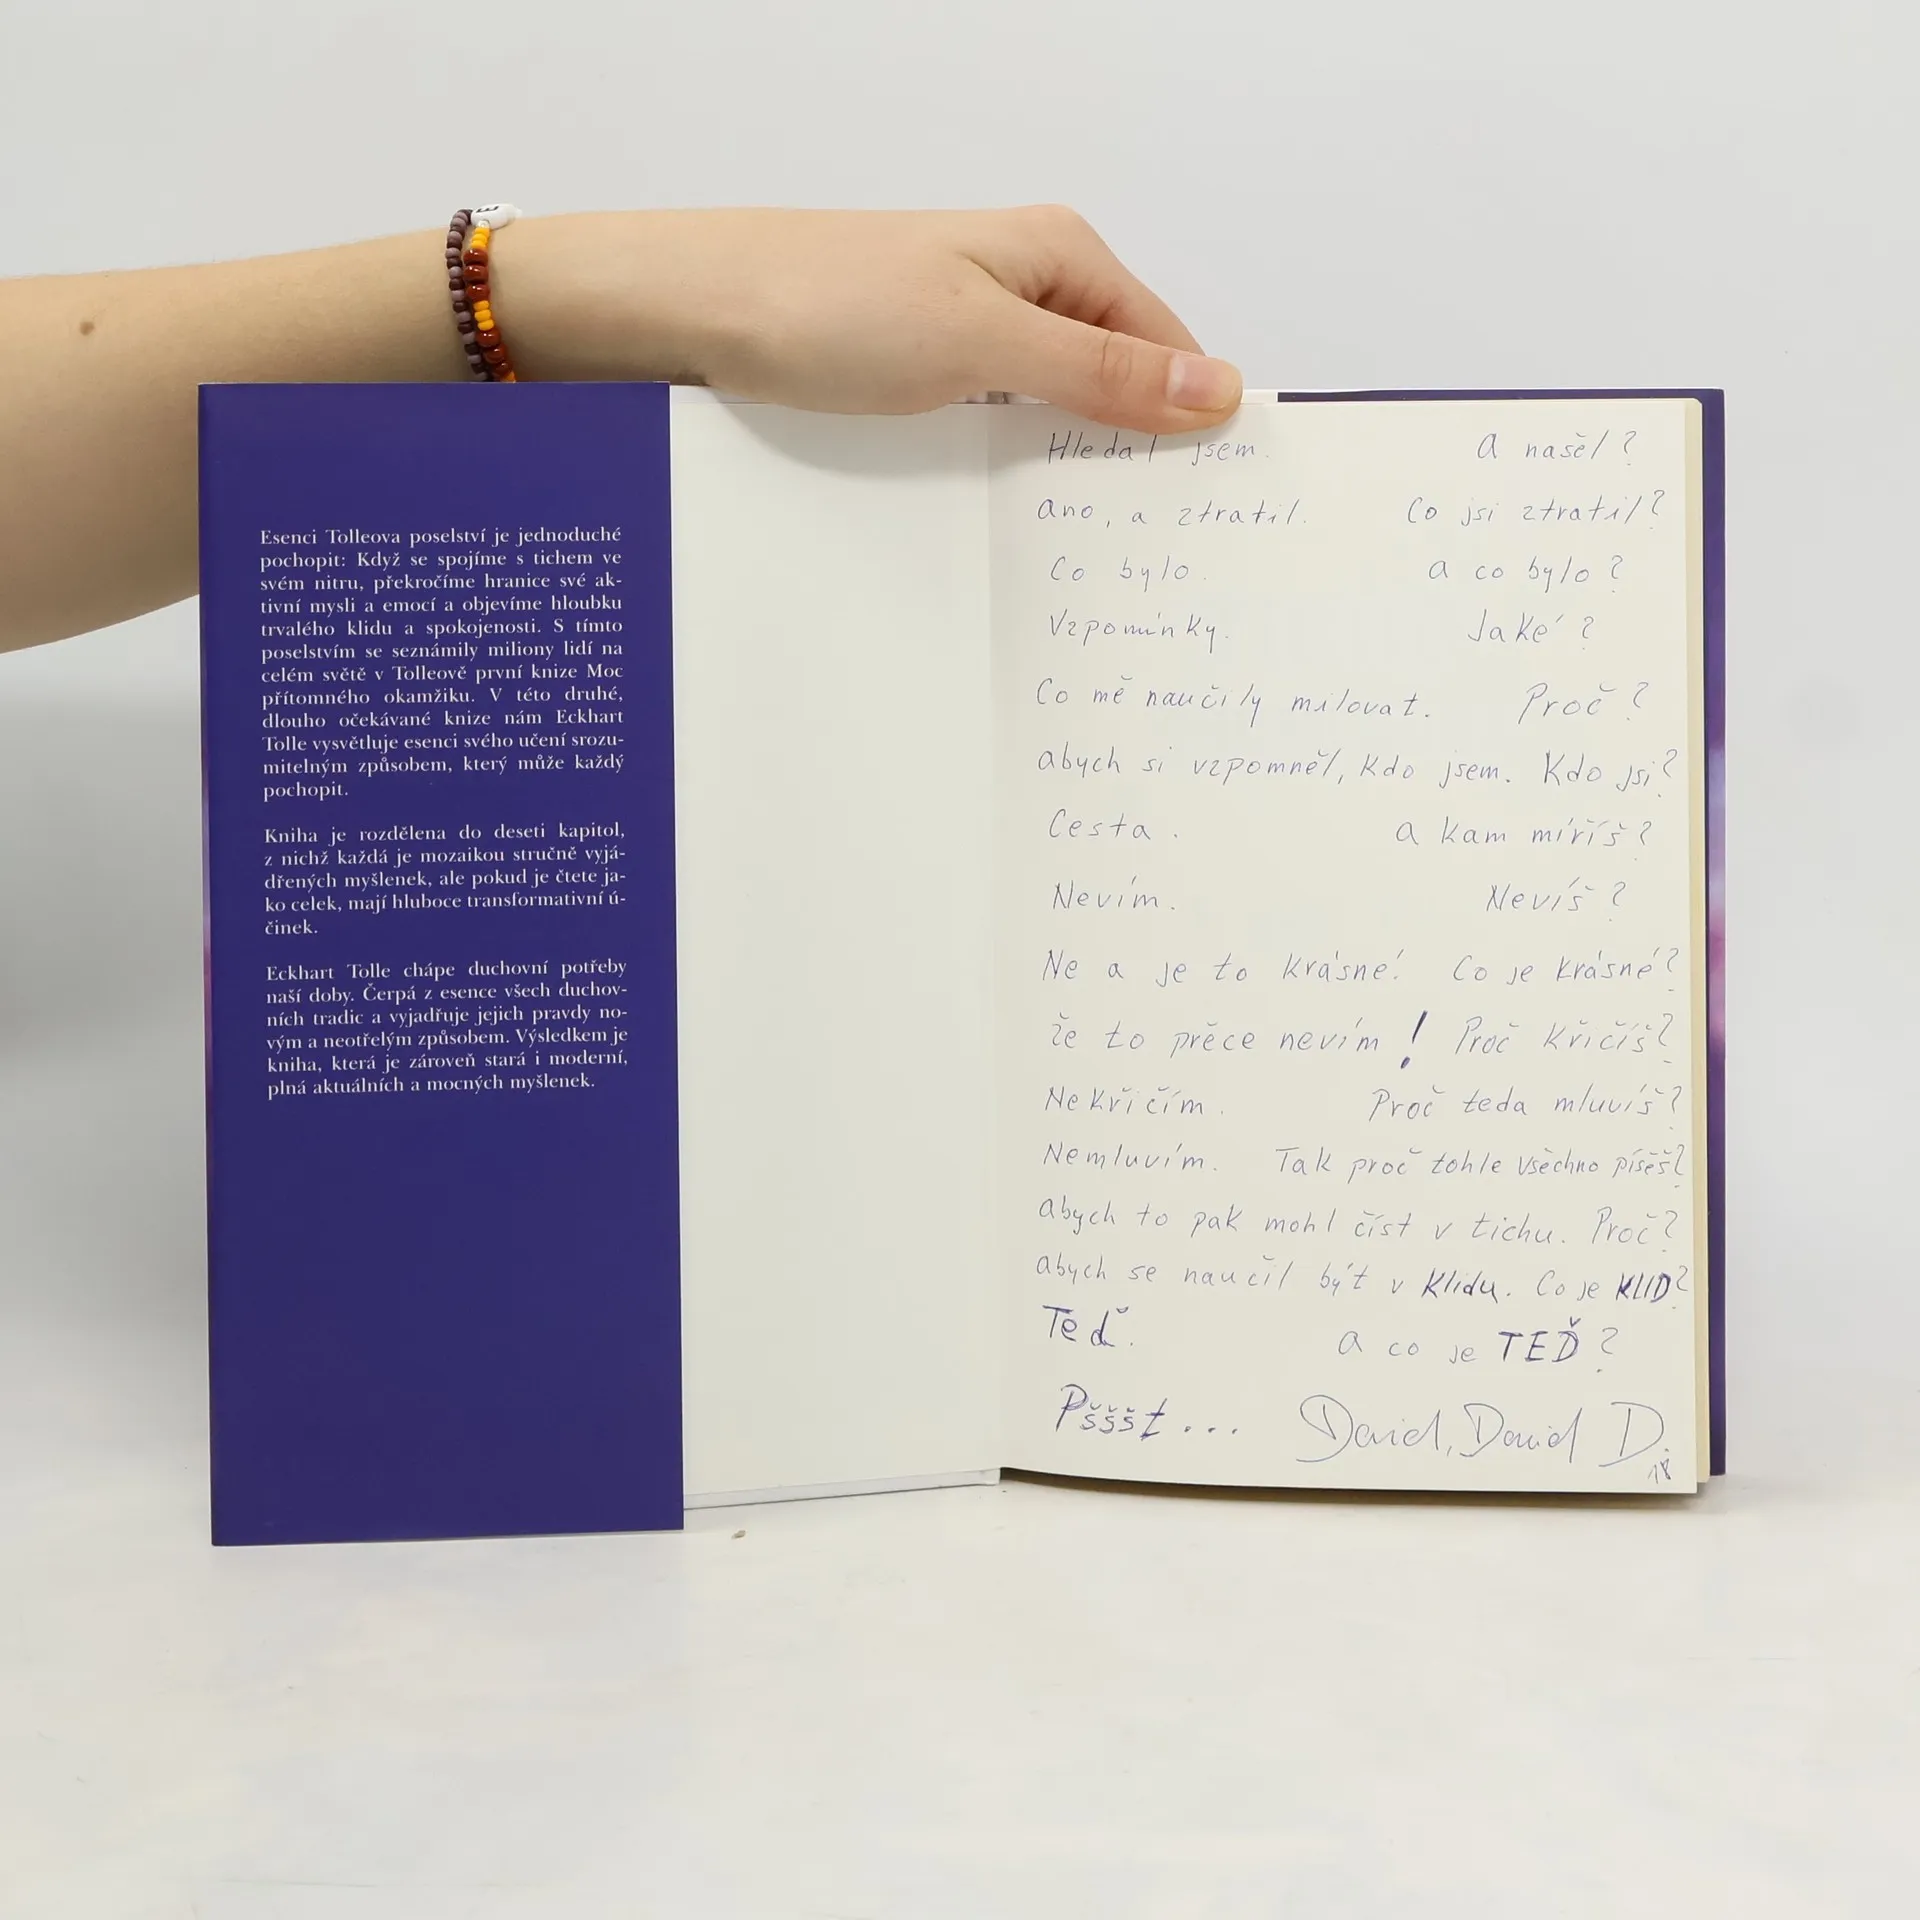 Esenci Tolleova poselství je jednoduché
pochopit: Když se spojíme s tichem ve
svém nitru, překročíme hranice své ak-
tivní mysli a emocí a objevíme hloubku
trvalého klidu a spokojenosti. S tímto
poselstvím se seznámily miliony lidí na
celém světě v Tolleově první knize Moc
přítomného okamžiku. V této druhé,
dlouho očekávané knize nám Eckhart
Tolle vysvětluje esenci svého učení srozu-
mitelným způsobem, který může každý
pochopit.
Kniha je rozdělena do deseti kapitol,
z nichž každá je mozaikou stručně vyjá-
dřených myšlenek, ale pokud je čtete ja-
ko celek, mají hluboce transformativní ú-
činek.
Eckhart Tolle chápe duchovní potřeby
naší doby. Čerpá z esence všech duchov-
ních tradic a vyjadřuje jejich pravdy no-
vým a neotřelým způsobem. Výsledkem je
kniha, která je zároveň stará i moderní,
plná aktuálních a mocných myšlenek.
Hledal jsem. A našěl?
ano, a ztratil. Co jsi ztratil?
Co bylo. A co bylo?
Vzpomínky. Jaké?
Co mě naučily milovat. Proč?
abych si vzpomněl, kdo jsem. Kdo jsi?
Cesta. a kam míříš?
Nevím. Nevíš?
Ne a je to krásné! Co je krásné?
že to přece nevím! Proč křičíš?
Nekřičím. Proč teda mluvíš?
Nemluvím. Tak proč tohle všechno píšeš?
abych to pak mohl číst v tichu. Proč?
abych se naučil být v klidu. Co je KLID?
Teď. a co je TEĎ?
Pšššt... David, David D.
18